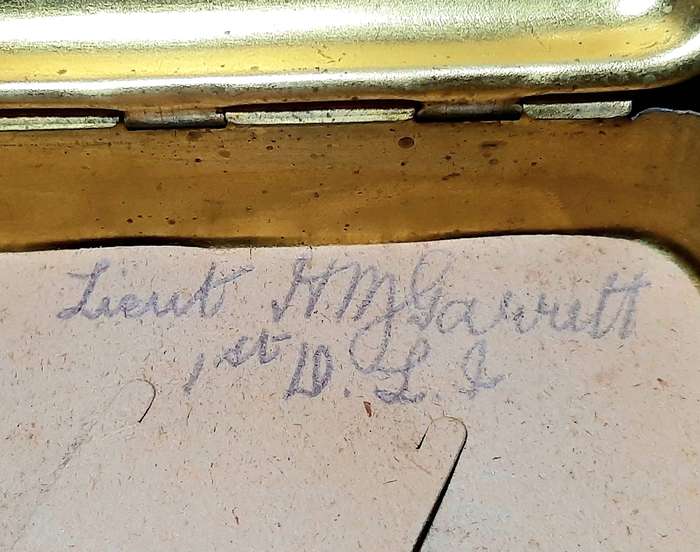 Lieut H M Garrett
1st D. L. I